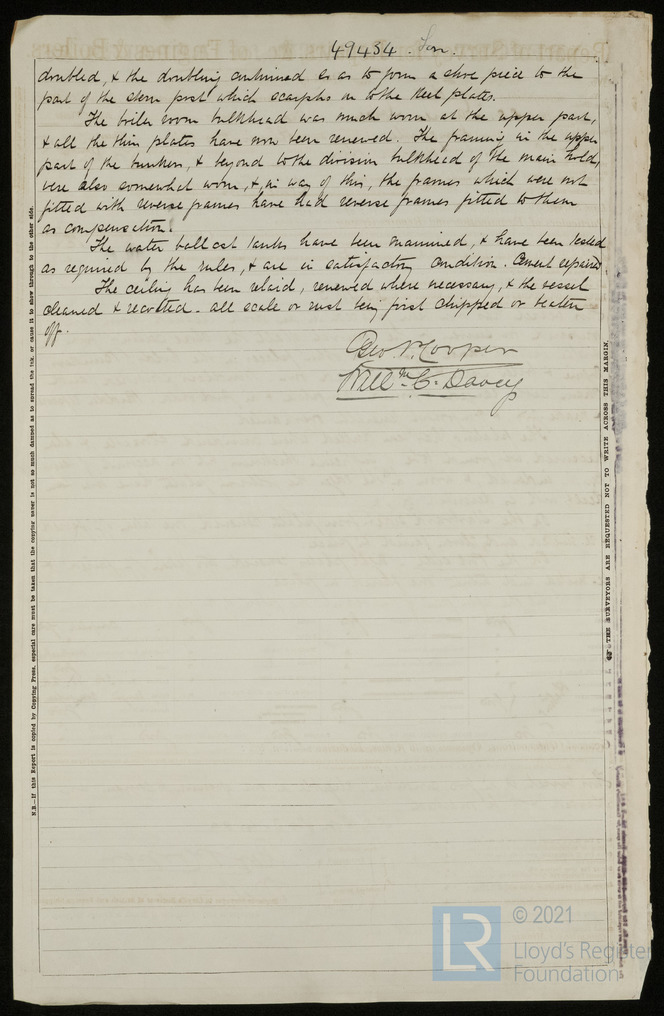 49434 Iron.
doubled, & the doubling continued so as to form a shoe piece to the
part of the stern post which scarphs on to the keel plates.
The boiler room bulkhead was much worn at the upper part,
& all the thin plates have now been renewed. The framing in the upper
part of the bunkers, & beyond to the division bulkhead of the main hold,
were also somewhat worn, &, in way of this, the frames which were not
fitted with reverse frames have had reverse frames fitted to them
as compensation.
The water ballast tanks have been examined, & have been tested
as required by the rules, & are in satisfactory condition. Cement repaired.
The ceiling has been relaid, renewed where necessary, & the vessel
cleaned & recoated. all scale or rust being first chipped or beaten
off.
Geo. P. Cooper
Will^m C. Davey
N.B.—If this Report is copied by Copying Press, especial care must be taken that the copying paper is not so much damped as to spread the ink, or cause it to show through to the other side.
THE SURVEYORS ARE REQUESTED NOT TO WRITE ACROSS THIS MARGIN.
LR
© 2021
Lloyd's Register
Foundation